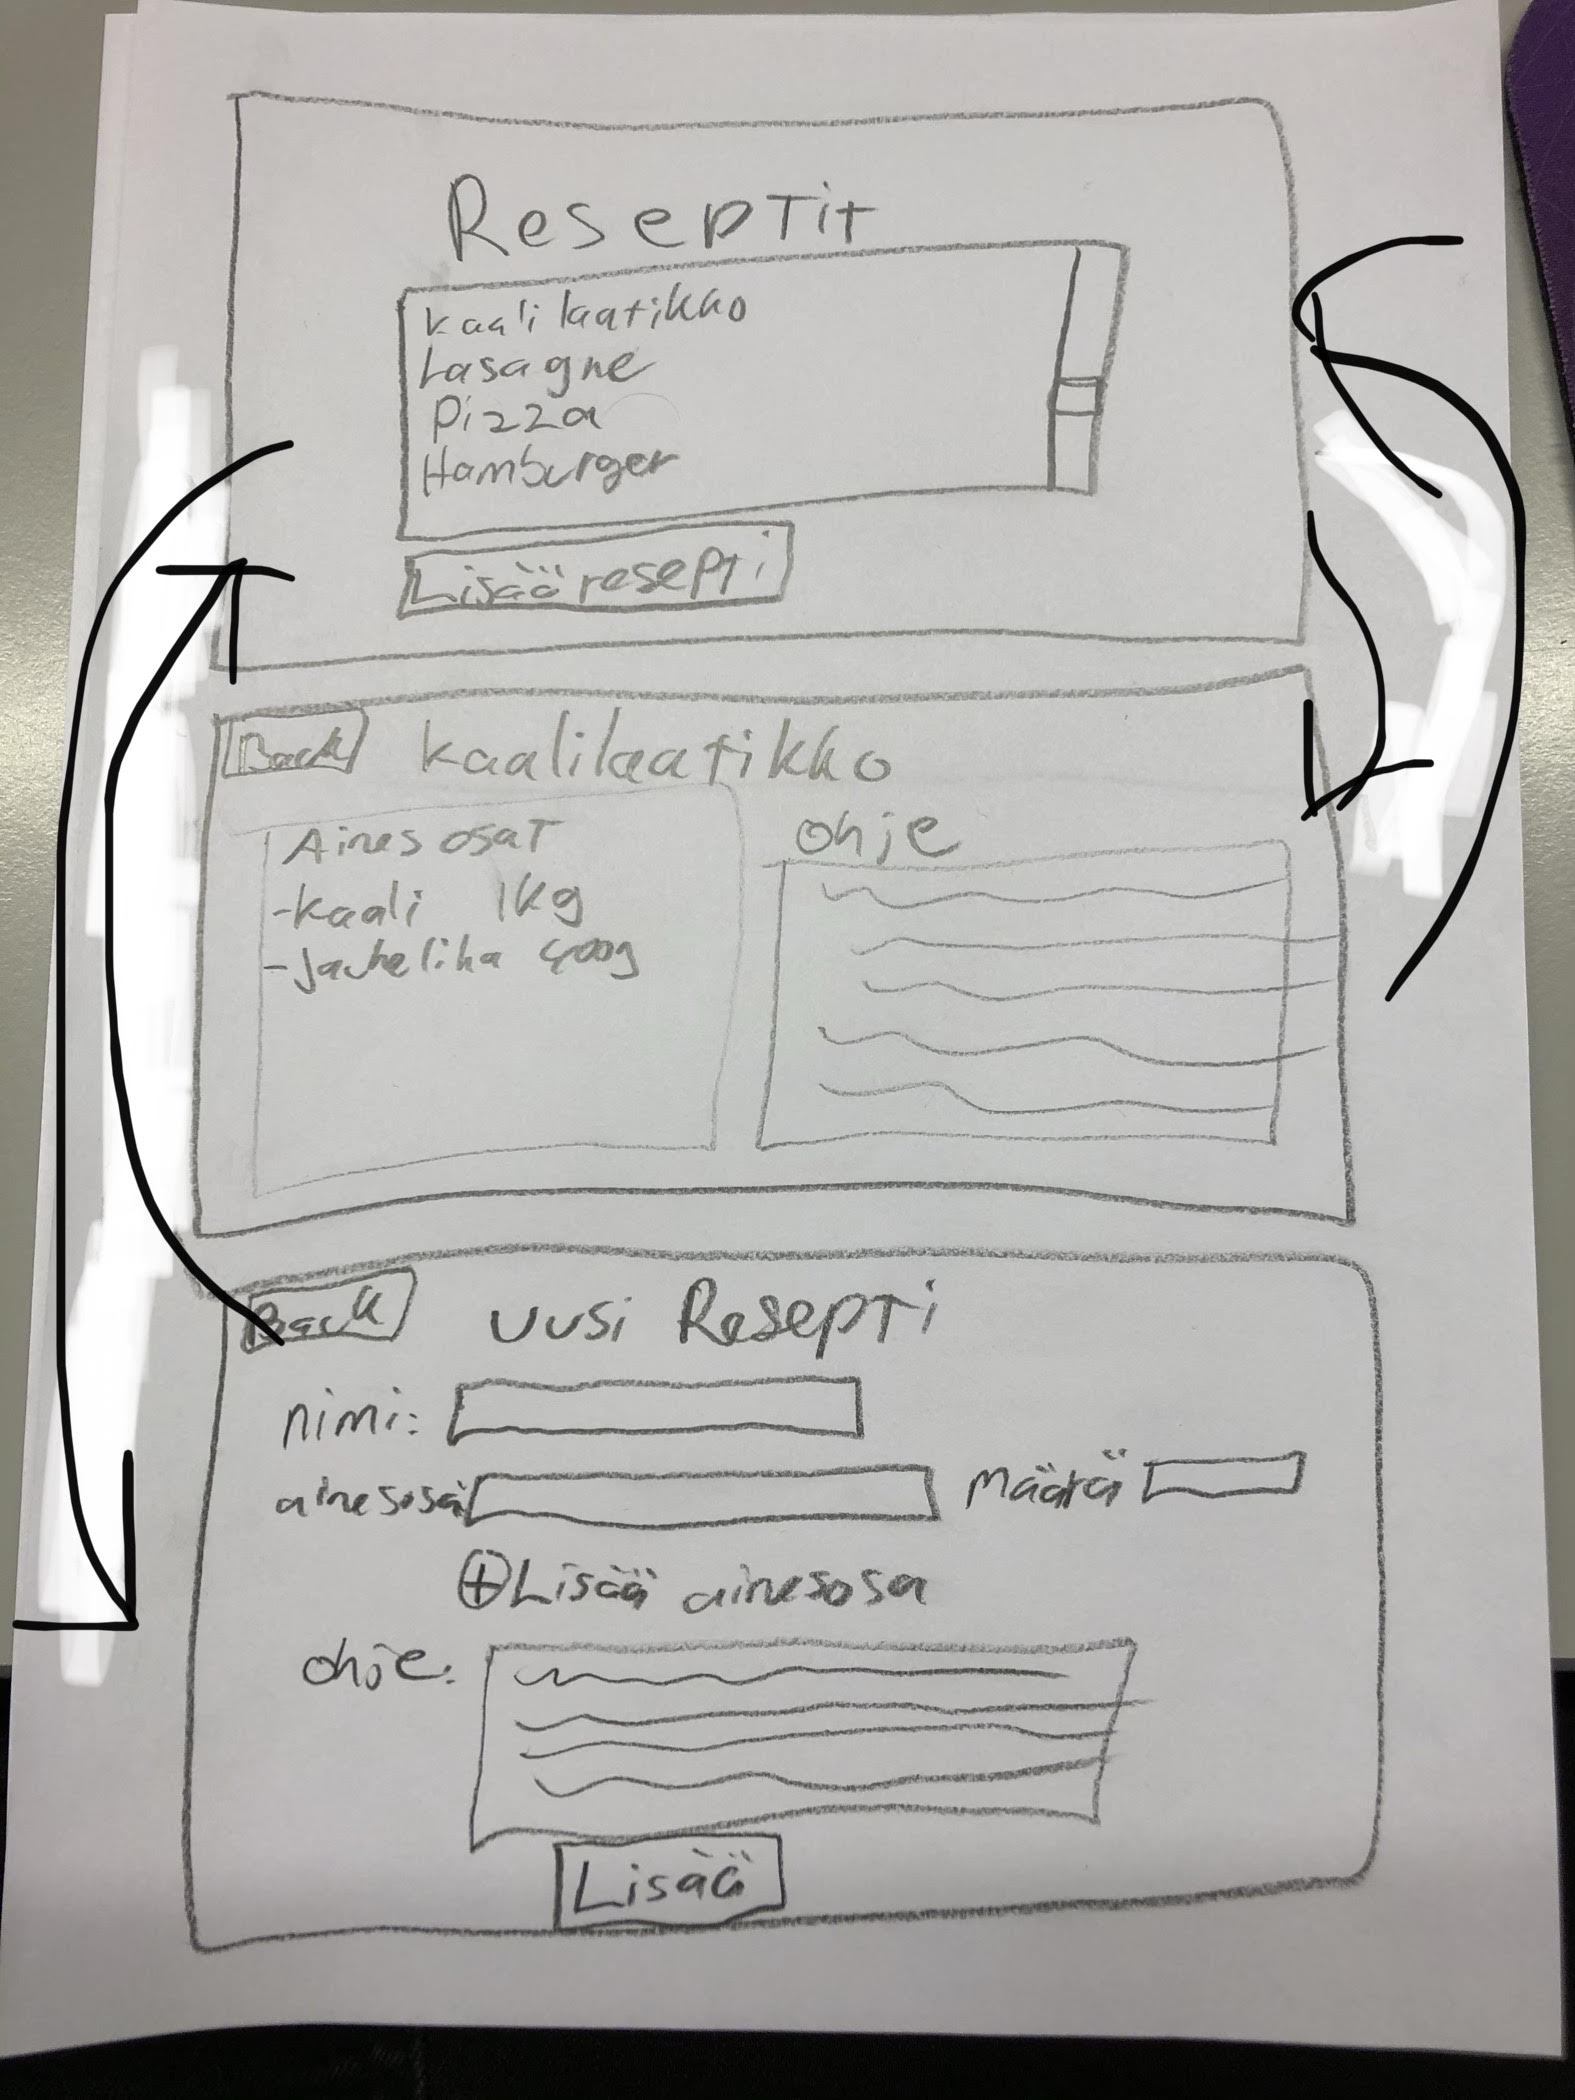 Reseptit
kaalilaatikko
Lasagne
Pizza
Hamburger
Lisää resepti
Back kaalilaatikko
Ainesosat
-kaali 1kg
-jauheliha 400g
ohje
Back uusi Resepti
nimi:
ainesosa Määrä
+Lisää ainesosa
ohje:
Lisää